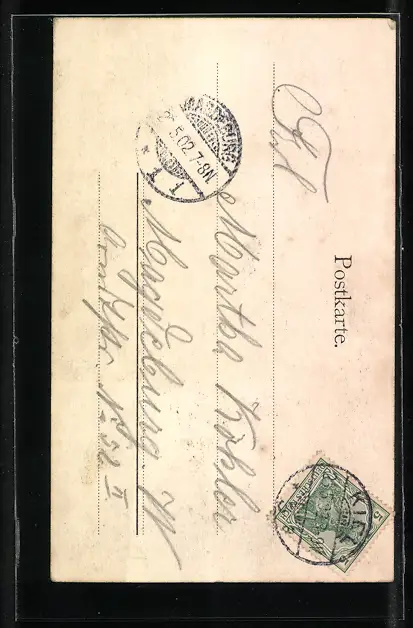 Postkarte.
Frl.
Martha Köhler
Magdeburg. W
No 52 II
MAGDEBURG
5.02 7-8N
* 1 1
KIEL
5 5